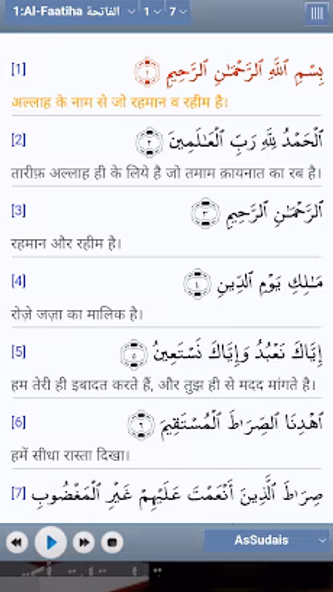 1:Al-Faatiha الفاتحة 1 7
[1] بِسْمِ ٱللَّهِ ٱلرَّحْمَـٰنِ ٱلرَّحِيمِ ١
अल्लाह के नाम से जो रहमान व रहीम है।
[2] ٱلْحَمْدُ لِلَّهِ رَبِّ ٱلْعَـٰلَمِينَ ٢
तारीफ़ अल्लाह ही के लिये है जो तमाम क़ायनात का रब है।
[3] ٱلرَّحْمَـٰنِ ٱلرَّحِيمِ ٣
रहमान और रहीम है।
[4] مَـٰلِكِ يَوْمِ ٱلدِّينِ ٤
रोज़े जज़ा का मालिक है।
[5] إِيَّاكَ نَعْبُدُ وَإِيَّاكَ نَسْتَعِينُ ٥
हम तेरी ही इबादत करते हैं, और तुझ ही से मदद मांगते है।
[6] ٱهْدِنَا ٱلصِّرَٰطَ ٱلْمُسْتَقِيمَ ٦
हमें सीधा रास्ता दिखा।
[7] صِرَٰطَ ٱلَّذِينَ أَنْعَمْتَ عَلَيْهِمْ غَيْرِ ٱلْمَغْضُوبِ
AsSudais